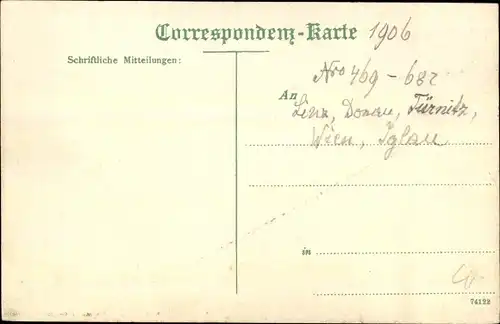 Correspondenz-Karte 1906
Schriftliche Mitteilungen:
Nro 469-682
An
Linz, Donau, Türnitz,
Wien, Iglau
in
74122